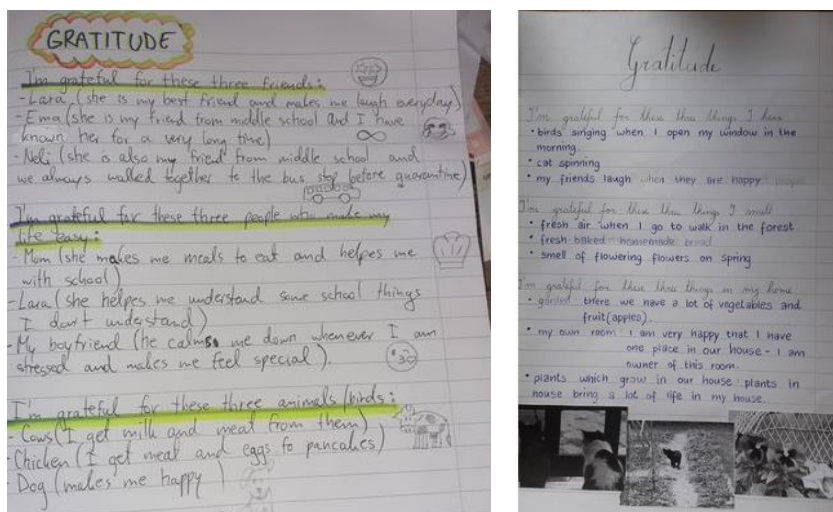 GRATITUDE
I'm grateful for these three friends:
- Lara (she is my best friend and makes me laugh everyday)
- Ema (she is my friend from middle school and I have
known her for a very long time)
- Neli (she is also my friend from middle school and
we always walked together to the bus stop before quarantine)
I'm grateful for these three people who make my
life easy:
- Mom (she makes me meals to eat and helpes me
with school)
- Lara (she helpes me understand some school things
I don't understand)
- My boyfriend (he calms me down whenever I am
stressed and makes me feel special).
I'm grateful for these three animals/birds:
- Cows (I get milk and meat from them)
- Chicken (I get meat and eggs fo pancakes)
- Dog (makes me happy )
Gratitude
I'm grateful for these three things I hear
• birds singing when I open my window in the
morning.
• cat spinning
• my friends laugh when they are happy people
I'm grateful for these three things I smell
• fresh air when I go to walk in the forest
• fresh-baked homemade bread
• smell of flowering flowers on spring
I'm grateful for these three things in my home
• garden: there we have a lot of vegetables and
fruit (apples).
• my own room: I am very happy that I have
one place in our house - I am
owner of this room.
• plants which grow in our house: plants in
house bring a lot of life in my house.